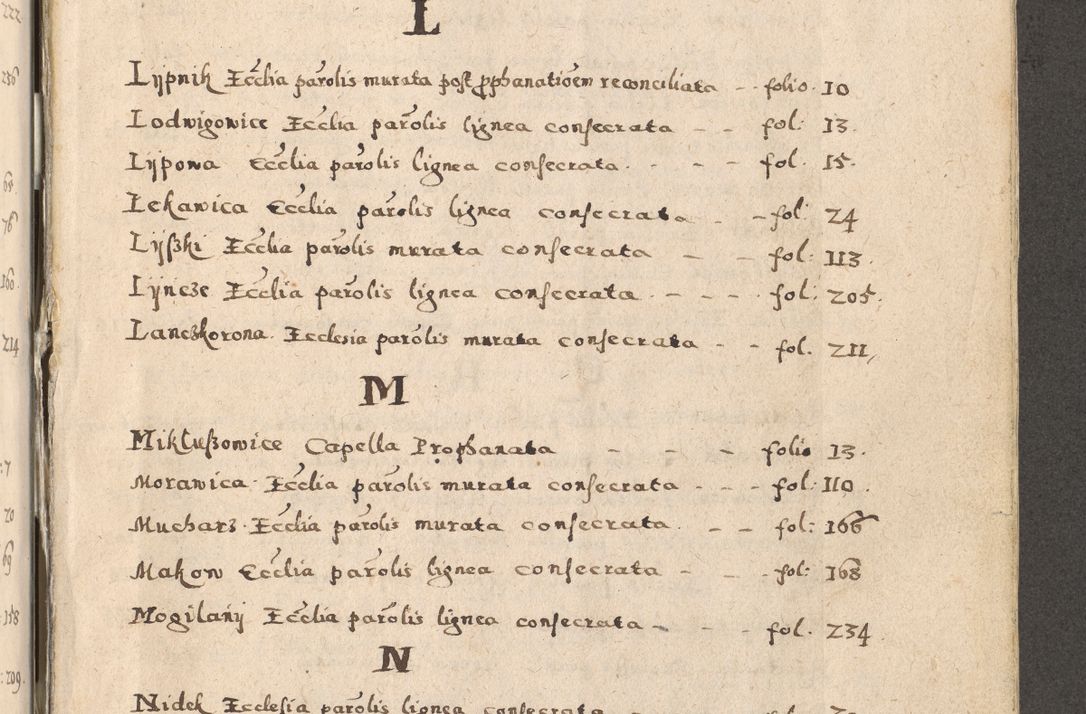 L
Lypnik Ecclia parolis murata post prophanationem reconciliata - folio. 10
Lodwigowice Ecclia parolis lignea consecrata - - fol: 13.
Lypowa Ecclia parolis lignea consecrata. - - - fol. 15.
Lekawica Ecclia parolis lignea consecrata - - fol: 24
Lyszki Ecclia parolis murata consecrata - - fol: 113
Lyncze Ecclia parolis lignea consecrata. - - - fol: 205.
Lanczkorona. Ecclesia parolis murata consecrata - - fol. 211,
M
Mikluszowice Capella Prophanata - - - folio 13.
Morawica. Ecclia parolis murata consecrata - - - fol: 110.
Mucharz. Ecclia parolis murata consecrata. - - fol: 166
Makow Ecclia parolis lignea consecrata - - - fol: 168
Mogilany Ecclia parolis lignea consecrata - - - fol. 234
N
Nidek Ecclesia parolis lignea consecrata
222
65.
76
160.
214
:7
20
69
:158
:209.